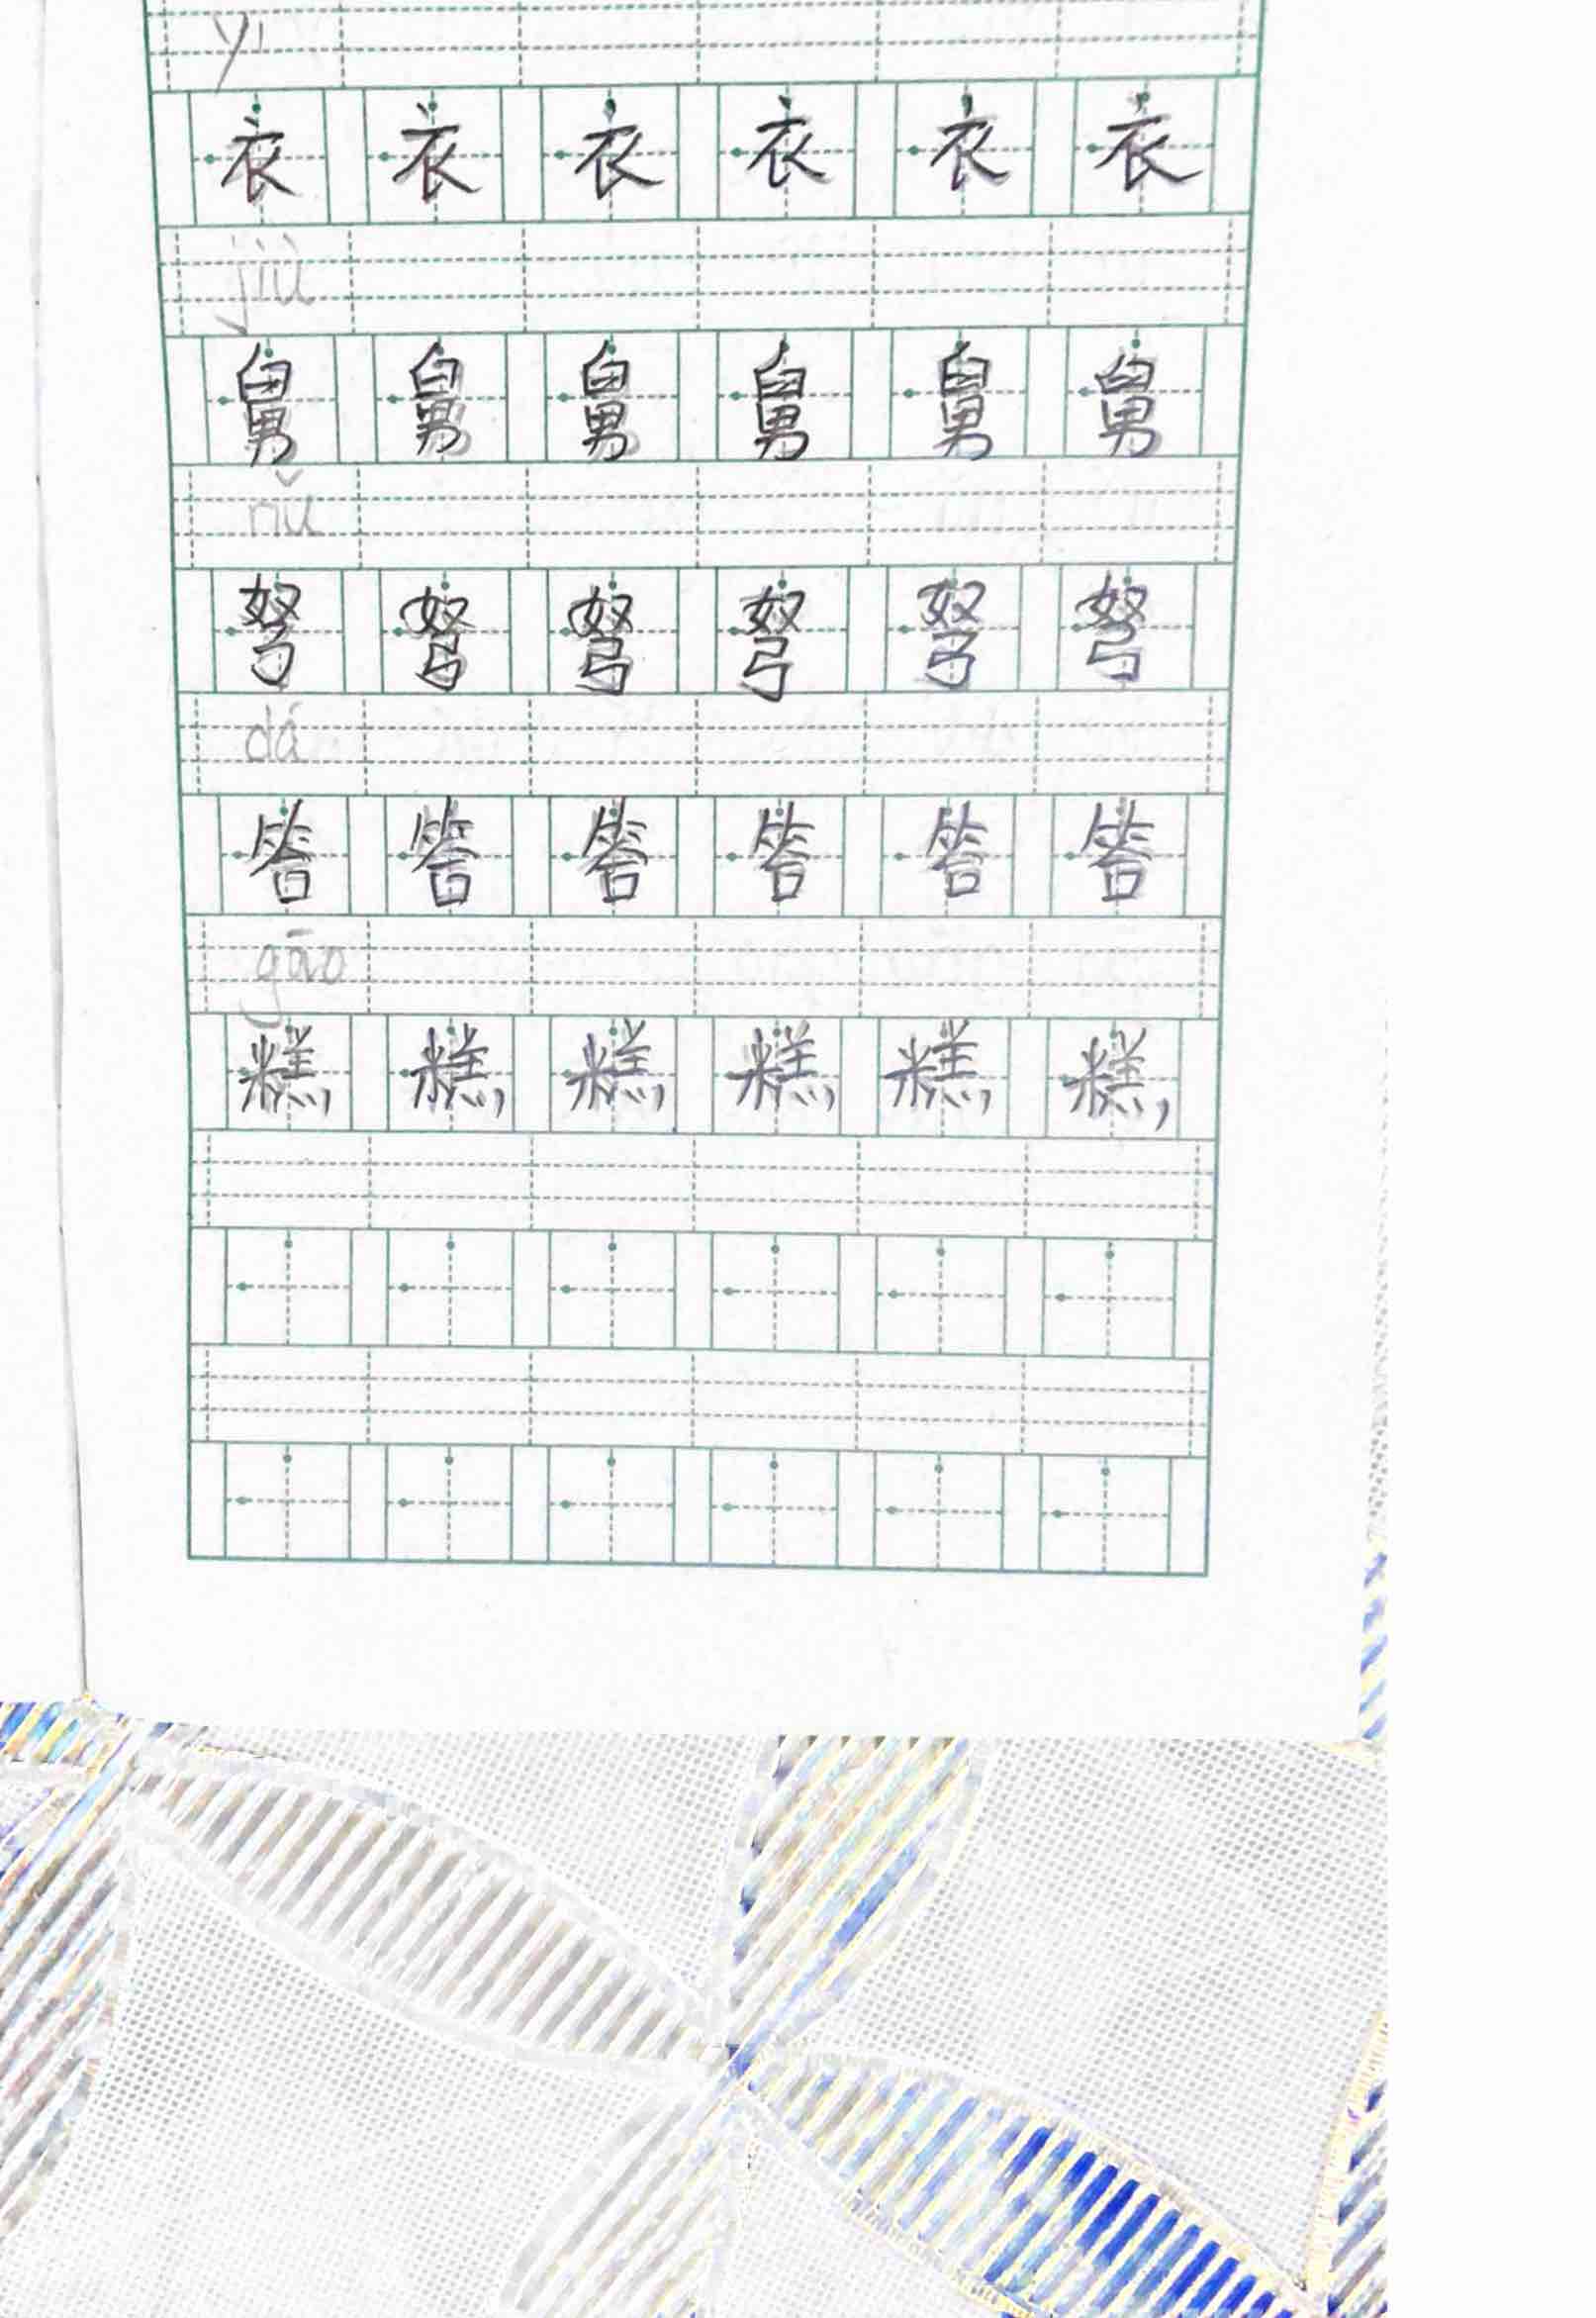 yī
衣 衣 衣 衣 衣 衣
jiù
舅 舅 舅 舅 舅 舅
nǔ
弩 弩 弩 弩 弩 弩
dá
答 答 答 答 答 答
gāo
糕 糕 糕 糕 糕 糕